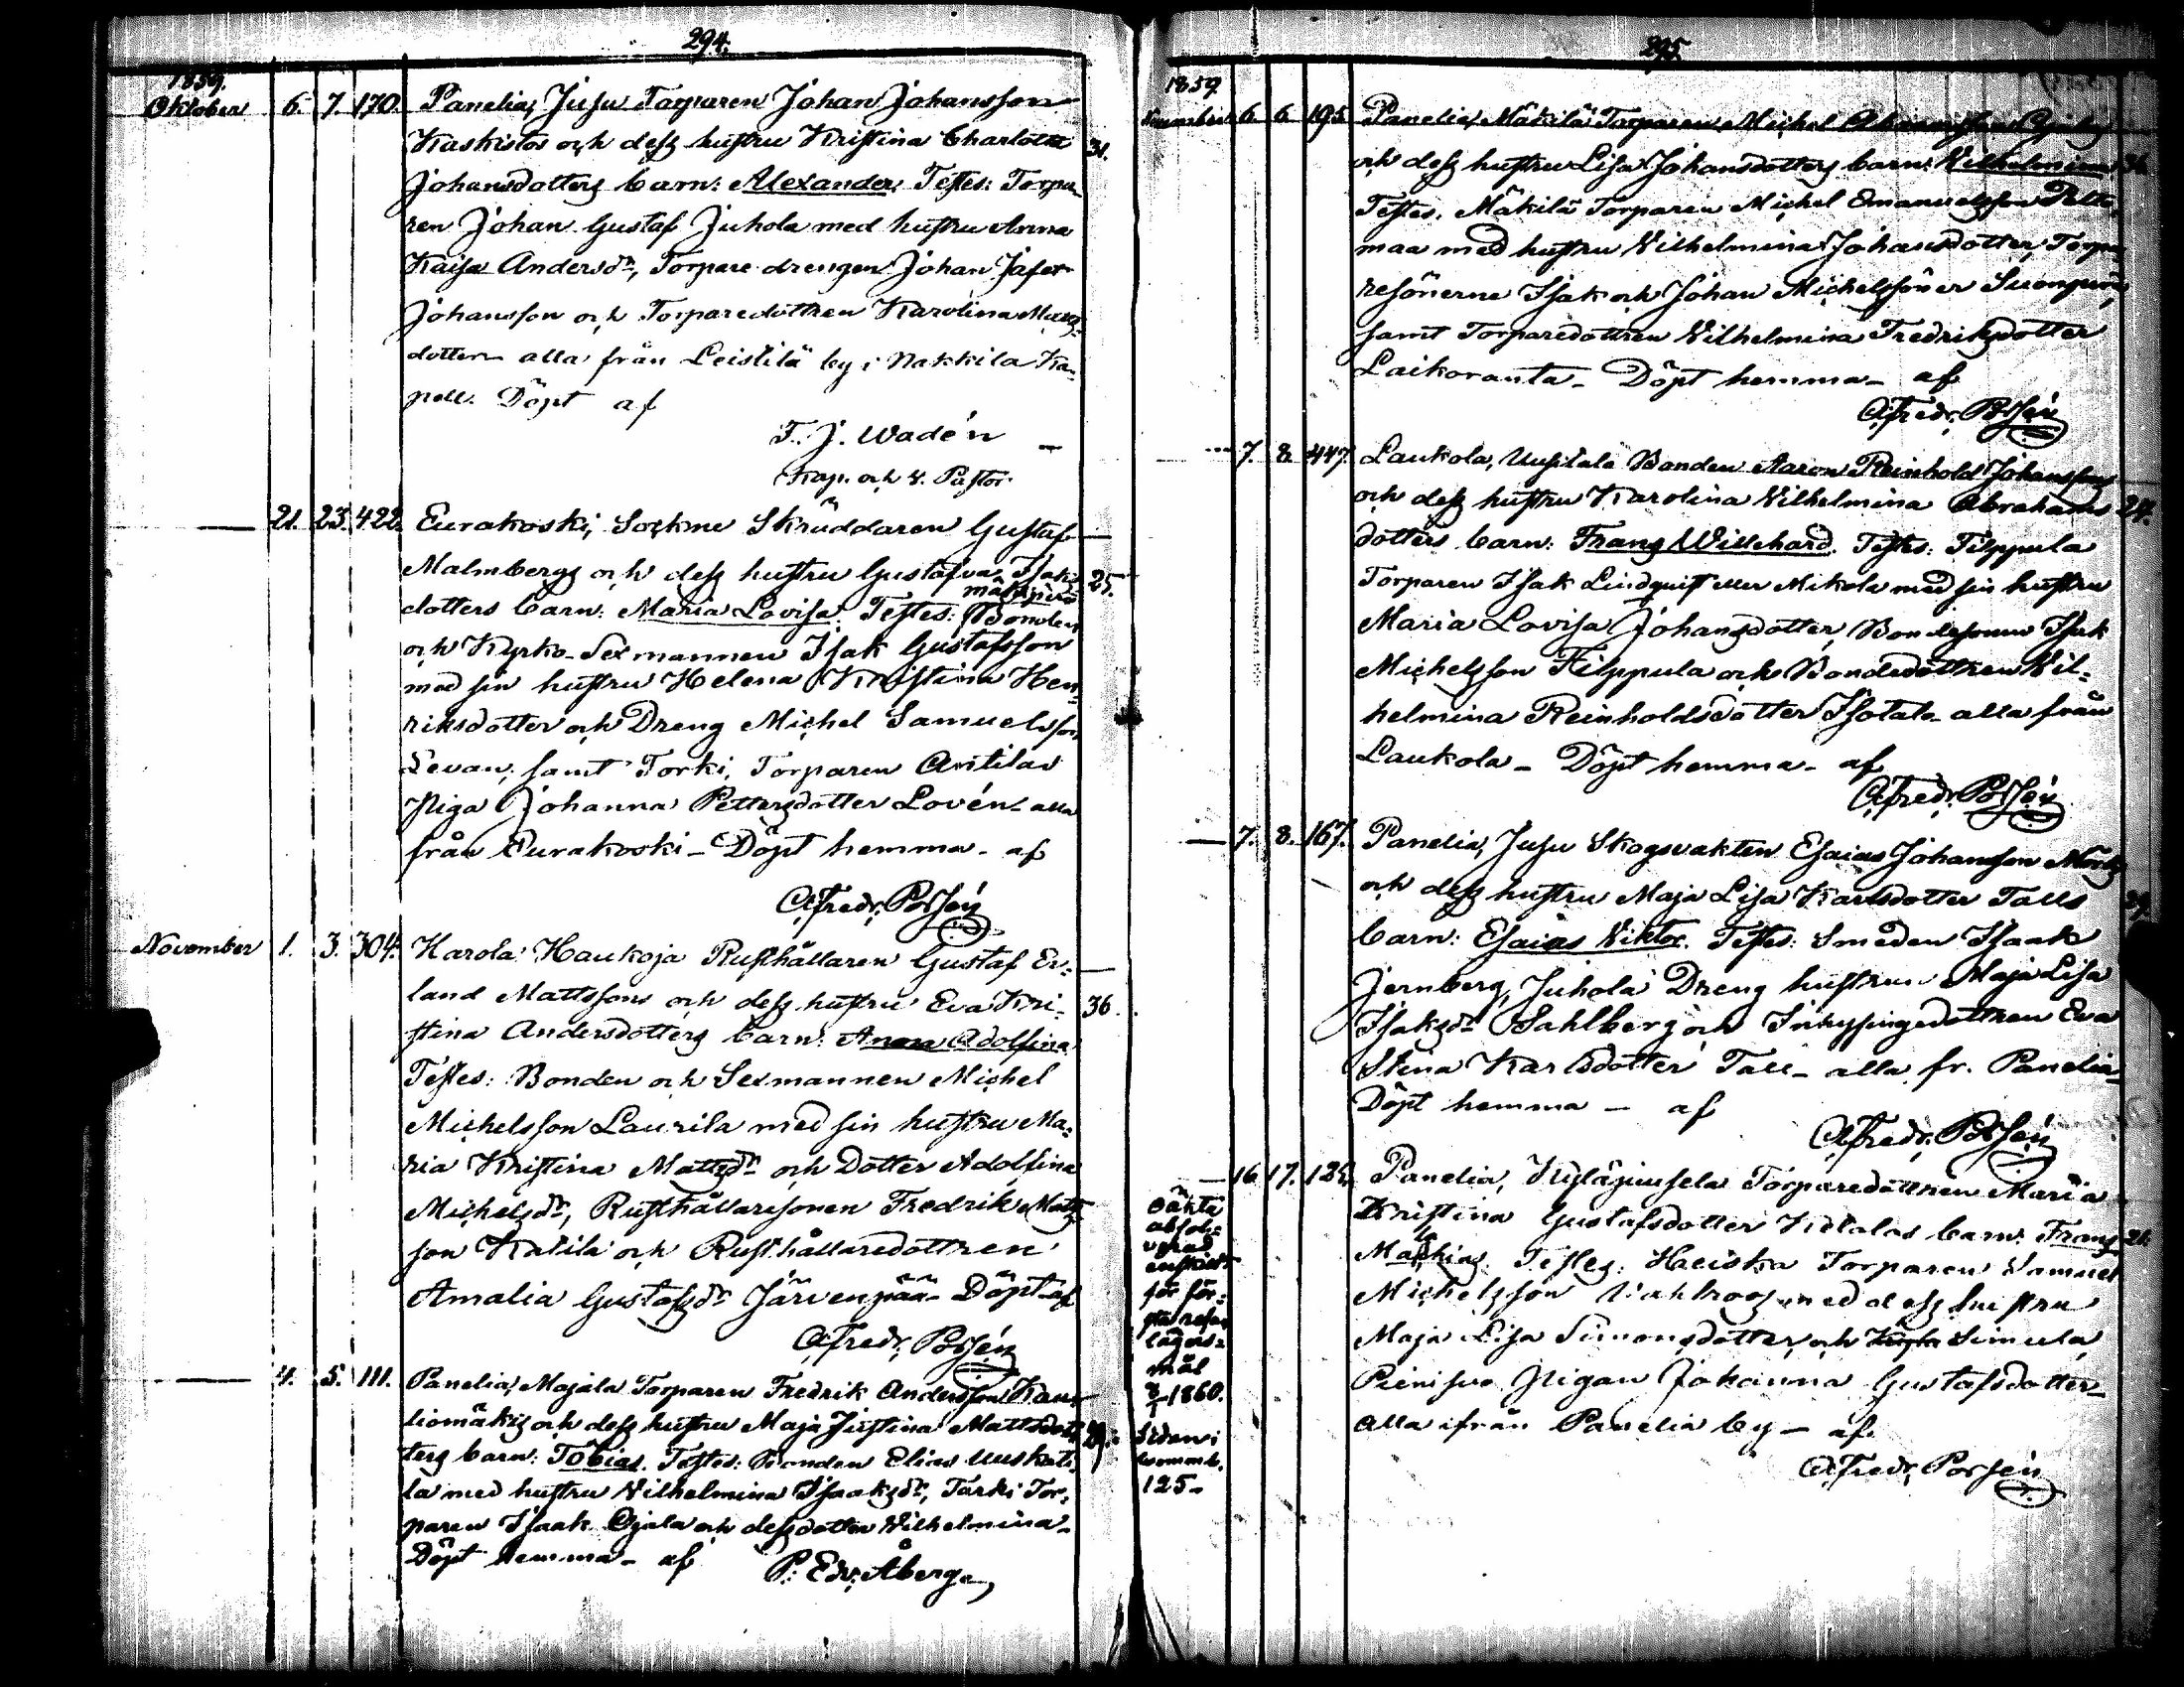 294.
1859.
Oktober 6. 7. 170. Panelia, Juju Torparen Johan Johansson
Kaskistos och dess hustru Kristina Charlotta 31.
Johansdotters barn: Alexander. Testes: Torpa-
ren Johan Gustaf Juhola med hustru Anna
Kaisa Andersdr, Torpare drengen Johan Jafet
Johansson och Torparedottren Karolina Matts-
dotter alla från Leistilä by i Nakkila Ka-
pell. Döpt af
F. J. Wadén
Kap. och v. Pastor.
21. 23. 422. Eurakoski, Sockne Skräddaren Gustaf
Malmbergs och dess hustru Gustafva Isaks- 25.
dotters barn: Maria Lovisa. Testes: Bonden
och Kyrko-Sexmannen Isak Gustafsson
med sin hustru Helena Kristina Hen-
riksdotter och Dreng Michel Samuelsson
Levan, samt Torki, Torparen Anttilas
Piga Johanna Pettersdotter Lovén alla
från Eurakoski – Döpt hemma – af
Alfredr. Borsén
November 1. 3. 304. Harola Haukoja Rusthållaren Gustaf Er-
land Mattssons och dess hustru Eva Kri- 36.
stina Andersdotters barn: Anna Adolfina
Testes: Bonden och Sexmannen Michel
Michelsson Laurila med sin hustru Ma-
ria Kristina Mattsdr och Dotter Adolfina
Michelsdr, Rusthållaresonen Fredrik Matts-
son Katila och Rusthållaredottren
Amalia Gustafsdr Järvenpää – Döpt af
Alfredr. Borsén
4. 5. 111. Panelia, Majala Torparen Fredrik Andersson Kau-
liomäkis och dess hustru Maja Justina Mattsdot-
ters barn: Tobias. Testes: Bonden Elias Uuskati-
la med hustru Vilhelmina Isaaksdr, Tarki Tor-
paren Isaak Ojala och dess dotter Vilhelmina –
Döpt hemma – af P. Edv. Åberg
295.
1859
November 6 6 195 Panelia, Mäkilä Torparen Michel
och dess hustru Lisa Johansdotters barn: Vilhelmina
Testes. Mäkilä Torparen Michel Emanuelsson Pelto-
maa med hustru Vilhelmina Johansdotter, Torpa-
resönerne Isak och Johan Michelssöner Suonpää,
samt Torparedottren Vilhelmina Fredriksdotter
Laikoranta – Döpt hemma – af
Alfredr. Borsén
7. 8. 447. Laukola, Uusitalo Bonden Aaron Reinhold Johanssons
och dess hustru Karolina Vilhelmina Abrahams- 24.
dotters barn: Frans Willehard. Testes: Filppula
Torparen Isak Lindquist eller Mikola med sin hustru
Maria Lovisa Johansdotter, Bondesonen Isak
Michelsson Filppula och Bondedottren Vil-
helmina Reinholdsdotter Isotalo alla från
Laukola – Döpt hemma – af
Alfredr. Borsén
7. 8. 167. Panelia, Juju Skogsvakten Esaias Johansson
och dess hustru Maja Lisa Karlsdotter Talls
barn: Esaias Viktor. Testes: Smeden Isaak
Jernberg, Juhola Dreng hustrun Maja Lisa
Isaksdr Sahlberg och Inhysingedottren Eva
Stina Karlsdotter Tall – alla fr. Panelia –
Döpt hemma – af
Alfredr. Borsén
16 17. Panelia, Torparedottren Maria
Kristina Gustafsdotter Ketalas barn: Frans 21.
Mathias. Testes: Torparen Samuel
Michelsson med dess hustru
Maja Lisa Simonsdotter, och Simula
Pigan Johanna Gustafsdotter –
alla ifrån Panelia by – af
Alfredr. Borsén
Oäkta
absol-
verad
enskildt
för för-
sta resan
lägers-
mål
1860.
Sidan i
125 –